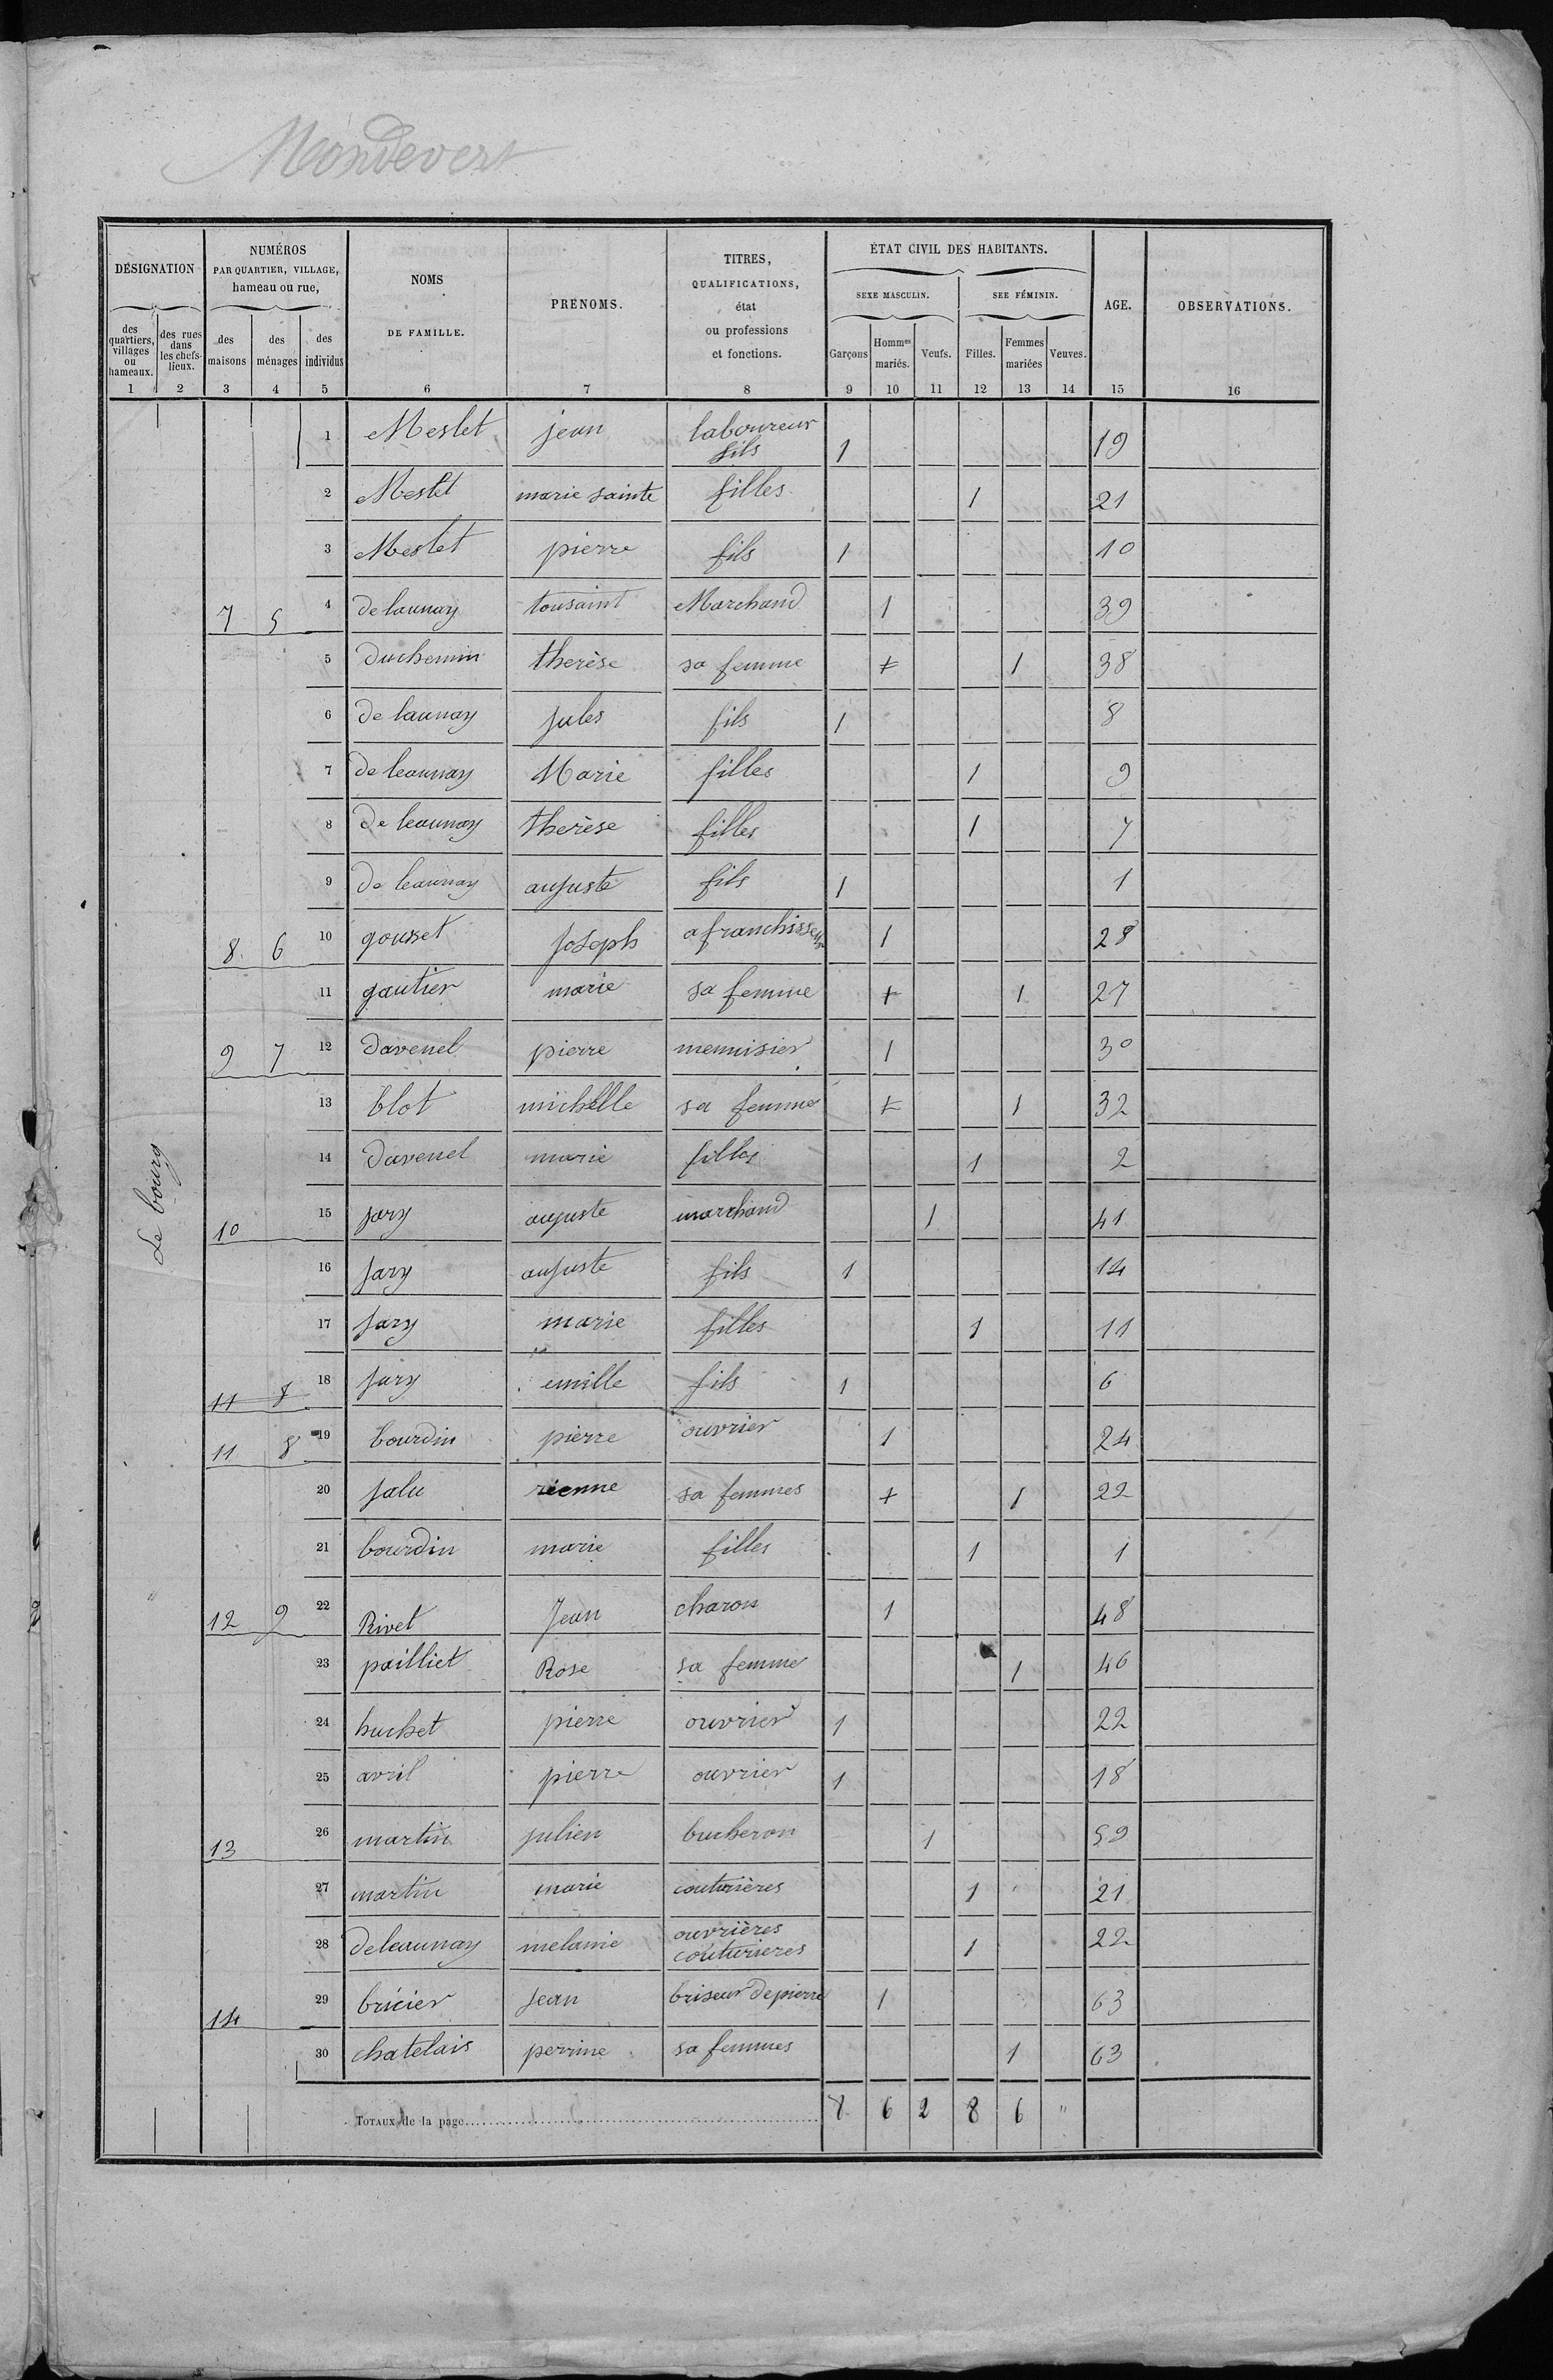 Mondevert
DÉSIGNATION
NUMÉROS PAR QUARTIER, VILLAGE, hameau ou rue,
NOMS DE FAMILLE.
PRÉNOMS.
TITRES, QUALIFICATIONS, état ou professions et fonctions.
ÉTAT CIVIL DES HABITANTS.
SEXE MASCULIN.
SEE FÉMININ.
AGE.
OBSERVATIONS.
des quartiers, villages ou hameaux.
des rues dans les chefs-lieux.
des maisons
des ménages
des individus
Garçons
Hommes mariés.
Veufs.
Filles.
Femmes mariées
Veuves.
1 2 3 4 5 6 7 8 9 10 11 12 13 14 15 16
Le bourg
1 Meslet jean laboureur fils 1 19
2 Meslet marie sainte filles 1 21
3 Meslet pierre fils 1 10
7 5 4 de launay tousaint Marchand 1 39
5 duchemin therèse sa femme 1 38
6 de launay jules fils 1 8
7 de leaunay Marie filles 1 9
8 de leaunay therèse filles 1 7
9 de leaunay auguste fils 1 1
8 6 10 gousset Joseph afranchisseur 1 28
11 gautier marie sa femme 1 27
9 7 12 davenel pierre menuisier 1 30
13 blot michelle sa femme 1 32
14 davenel marie filles 1 2
10 15 jary auguste marchand 1 41
16 jary auguste fils 1 14
17 jary marie filles 1 11
11 8 18 jary emille fils 1 6
11 8 19 bourdin pierre ouvrier 1 24
20 jalu rienne sa femmes 1 22
21 bourdin marie filles 1 1
12 9 22 Rivet Jean charon 1 48
23 pailliet Rose sa femme 1 46
24 huchet pierre ouvrier 1 22
25 avril pierre ouvrier 1 18
13 26 martin julien bucheron 1 59
27 martin marie couturières 1 21
28 deleaunay melanie ouvrières couturieres 1 22
14 29 bricier Jean briseur de pierre 1 63
30 chatelais perrine sa femmes 1 63
TOTAUX de la page 8 6 2 8 6 "